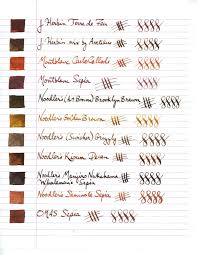 J. Herbin Terre de Feu
J. Herbin mix by
Montblanc Carlo Collodi
Montblanc Sepia
Noodler's (41 Brown) Brooklyn Brown
Noodler's Golden Brown
Noodler's (Swisher) Grizzly
Noodler's Kiowa Pecan
Noodler's Manjiro Nakahama
Whaleman's Sepia
Noodler's Seminole Sepia
OMAS Sepia